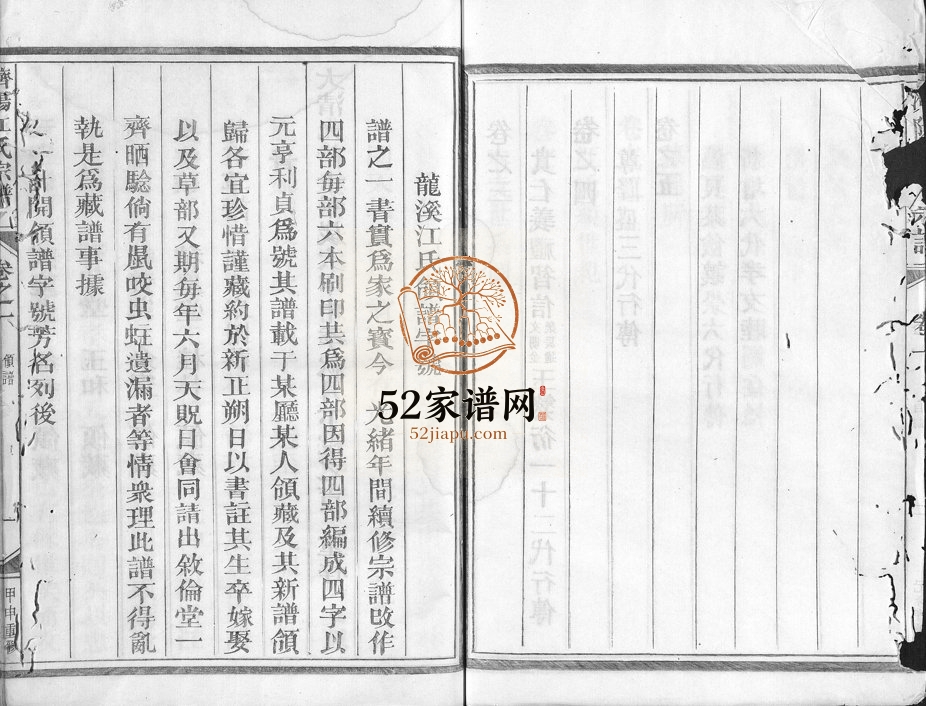 龍溪江氏領譜字號
譜之一書實爲家之寳今 光緒年間續修宗譜改作
四部每部六本刷印共爲四部因得四部編成四字以
元亨利貞爲號其譜載于某廳某人領藏及其新譜領
歸各宜珍惜謹藏約於新正朔日以書註其生卒嫁娶
以及草部又期每年六月天貺日會同請出敘倫堂一
齊晒驗倘有鼠咬虫蛀遺漏者等情衆理此譜不得亂
執是爲藏譜事據
計開領譜字號芳名列後
濟陽江氏宗譜
卷之一
領譜
一
甲申重修
宗譜
卷
52家谱网
52jiapu.com